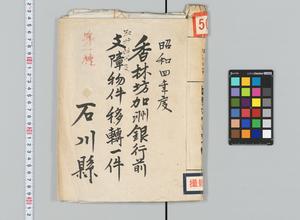 昭和四年度
香林坊加州銀行前
支障物件移轉一件
石川縣
第一種